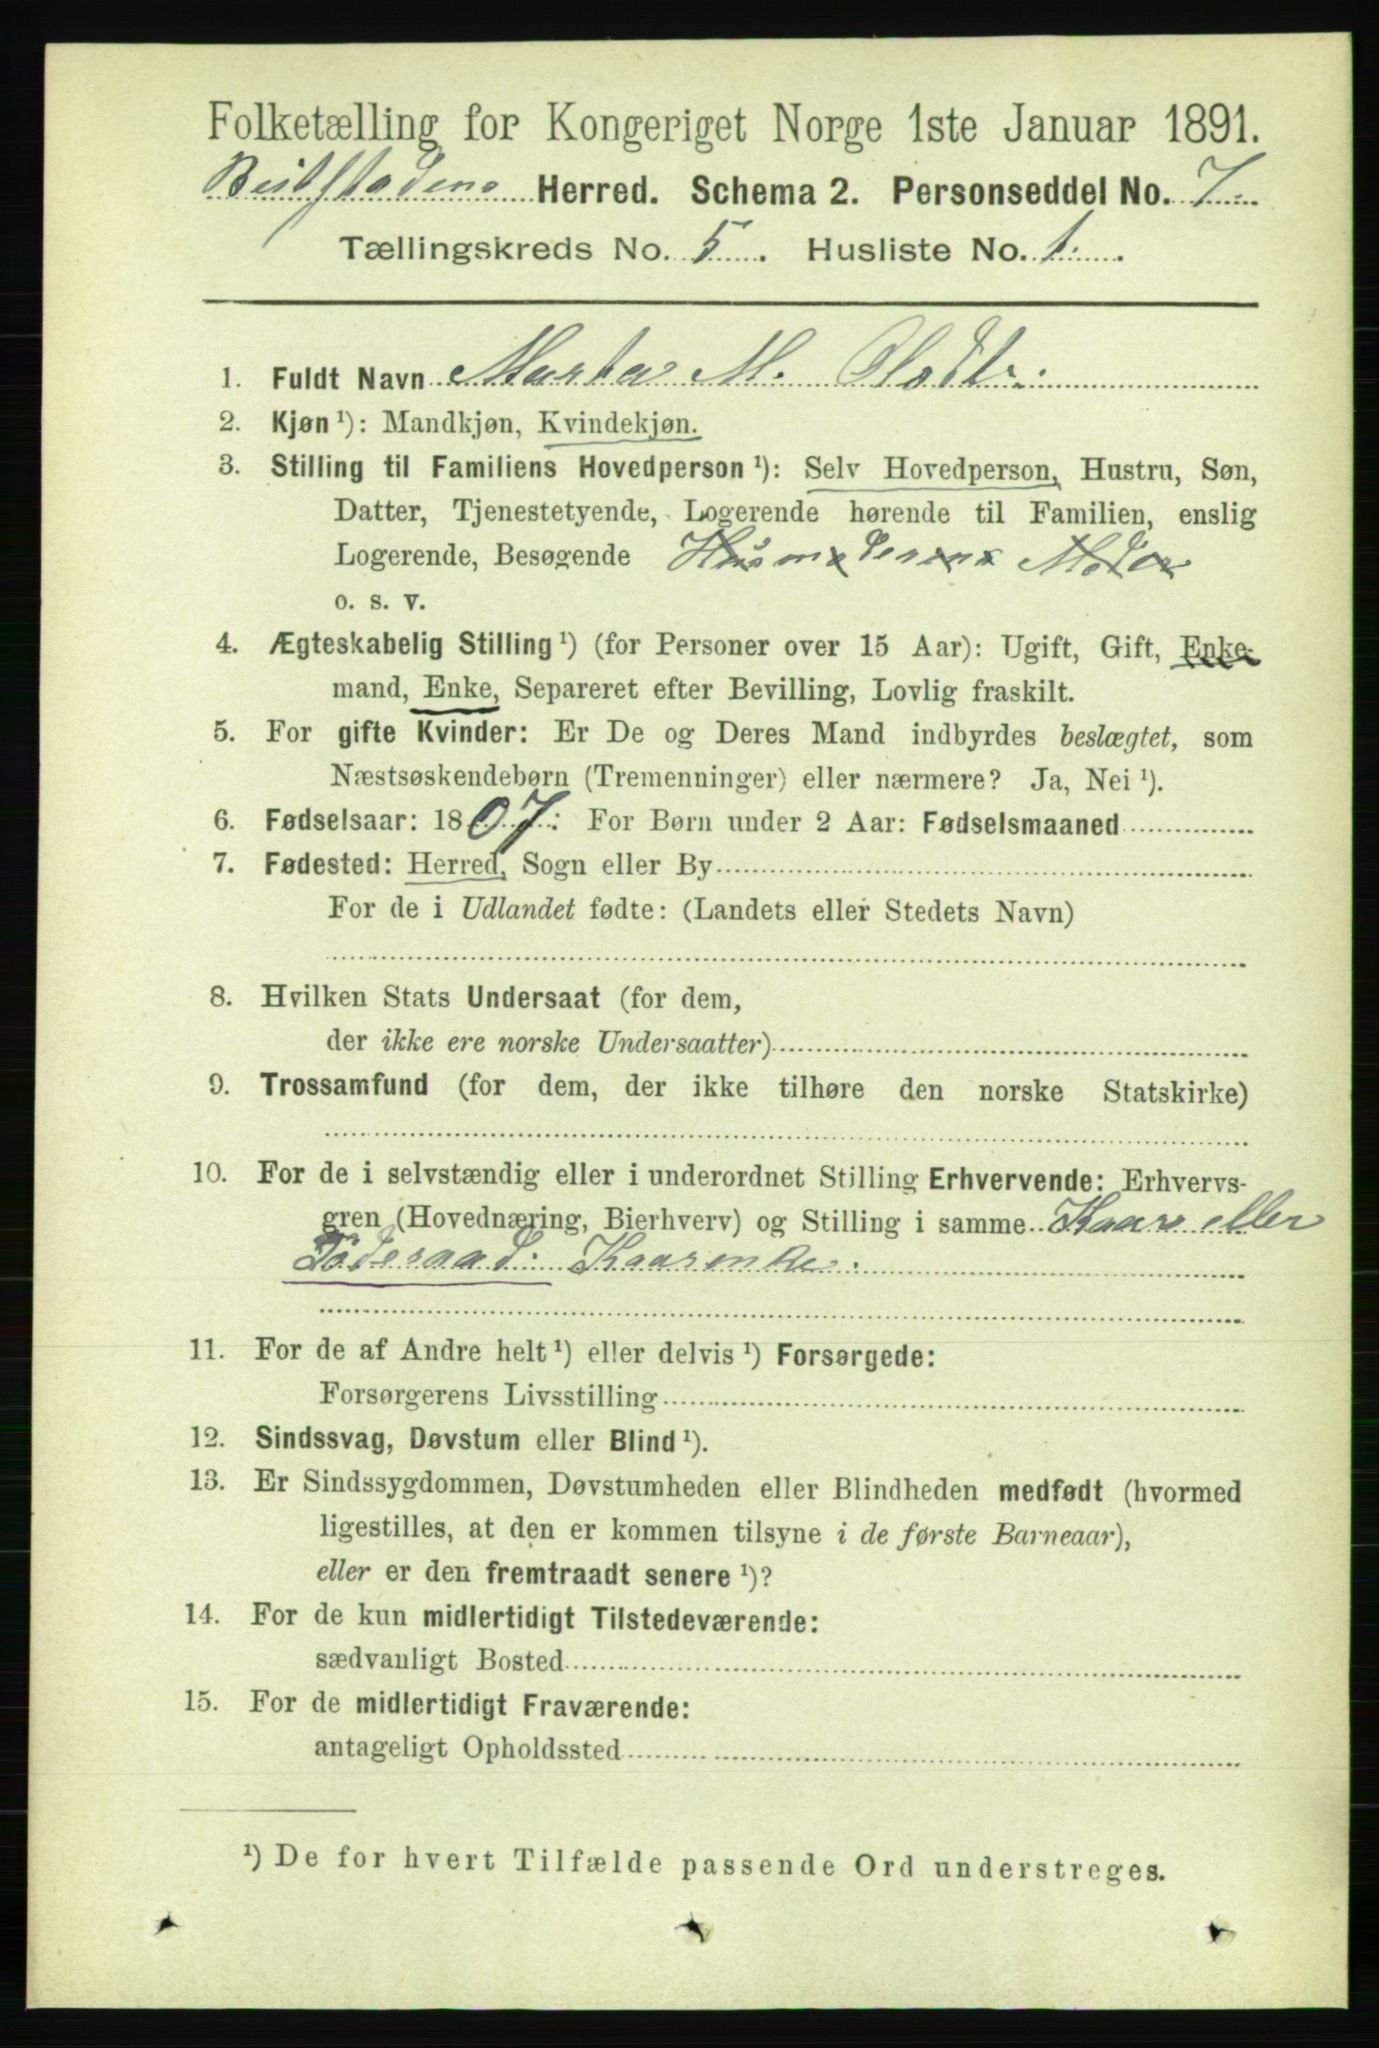 Folketælling for Kongeriget Norge 1ste Januar 1891.
Beitstadens Herred. Schema 2. Personseddel No. 7
Tællingskreds No. 5. Husliste No. 1.
1. Fuldt Navn Marta M. Olsdtr.
2. Kjøn ¹): Mandkjøn, Kvindekjøn.
3. Stilling til Familiens Hovedperson ¹): Selv Hovedperson, Hustru, Søn,
Datter, Tjenestetyende, Logerende hørende til Familien, enslig
Logerende, Besøgende Husmoderens Moder
o. s. v.
4. Ægteskabelig Stilling ¹) (for Personer over 15 Aar): Ugift, Gift, Enke-
mand, Enke, Separeret efter Bevilling, Lovlig fraskilt.
5. For gifte Kvinder: Er De og Deres Mand indbyrdes beslægtet, som
Næstsøskendebørn (Tremenninger) eller nærmere? Ja, Nei ¹).
6. Fødselsaar: 1807. For Børn under 2 Aar: Fødselsmaaned
7. Fødested: Herred, Sogn eller By
For de i Udlandet fødte: (Landets eller Stedets Navn)
8. Hvilken Stats Undersaat (for dem,
der ikke ere norske Undersaatter)
9. Trossamfund (for dem, der ikke tilhøre den norske Statskirke)
10. For de i selvstændig eller i underordnet Stilling Erhvervende: Erhvervs-
gren (Hovednæring, Bierhverv) og Stilling i samme Kaar eller
Føderaad: Kaarenke.
11. For de af Andre helt ¹) eller delvis ¹) Forsørgede:
Forsørgerens Livsstilling
12. Sindssvag, Døvstum eller Blind ¹).
13. Er Sindssygdommen, Døvstumheden eller Blindheden medfødt (hvormed
ligestilles, at den er kommen tilsyne i de første Barneaar),
eller er den fremtraadt senere ¹)?
14. For de kun midlertidigt Tilstedeværende:
sædvanligt Bosted
15. For de midlertidigt Fraværende:
antageligt Opholdssted
¹) De for hvert Tilfælde passende Ord understreges.